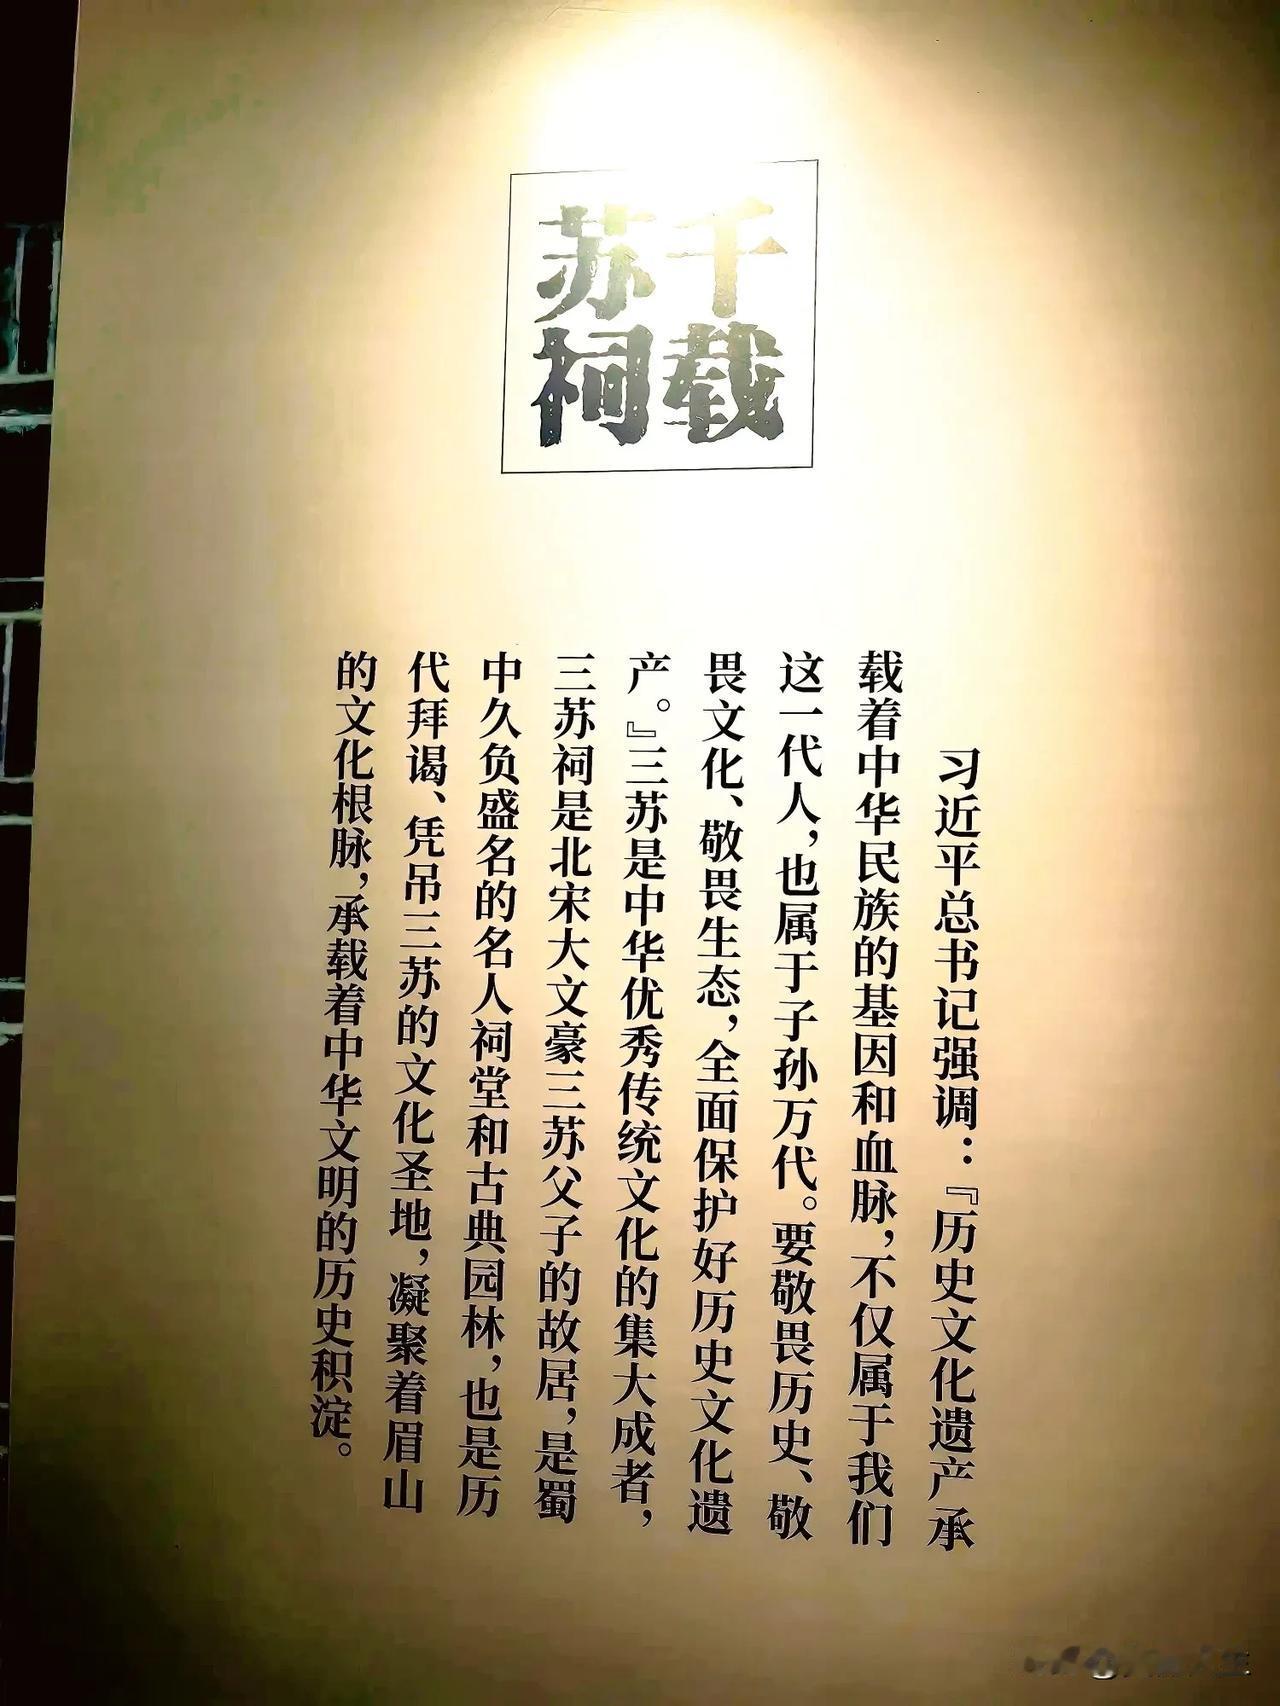 千载
苏祠
习近平总书记强调：『历史文化遗产承
载着中华民族的基因和血脉，不仅属于我们
这一代人，也属于子孙万代。要敬畏历史、敬
畏文化、敬畏生态，全面保护好历史文化遗
产。』三苏是中华优秀传统文化的集大成者，
三苏祠是北宋大文豪三苏父子的故居，是蜀
中久负盛名的名人祠堂和古典园林，也是历
代拜谒、凭吊三苏的文化圣地，凝聚着眉山
的文化根脉，承载着中华文明的历史积淀。